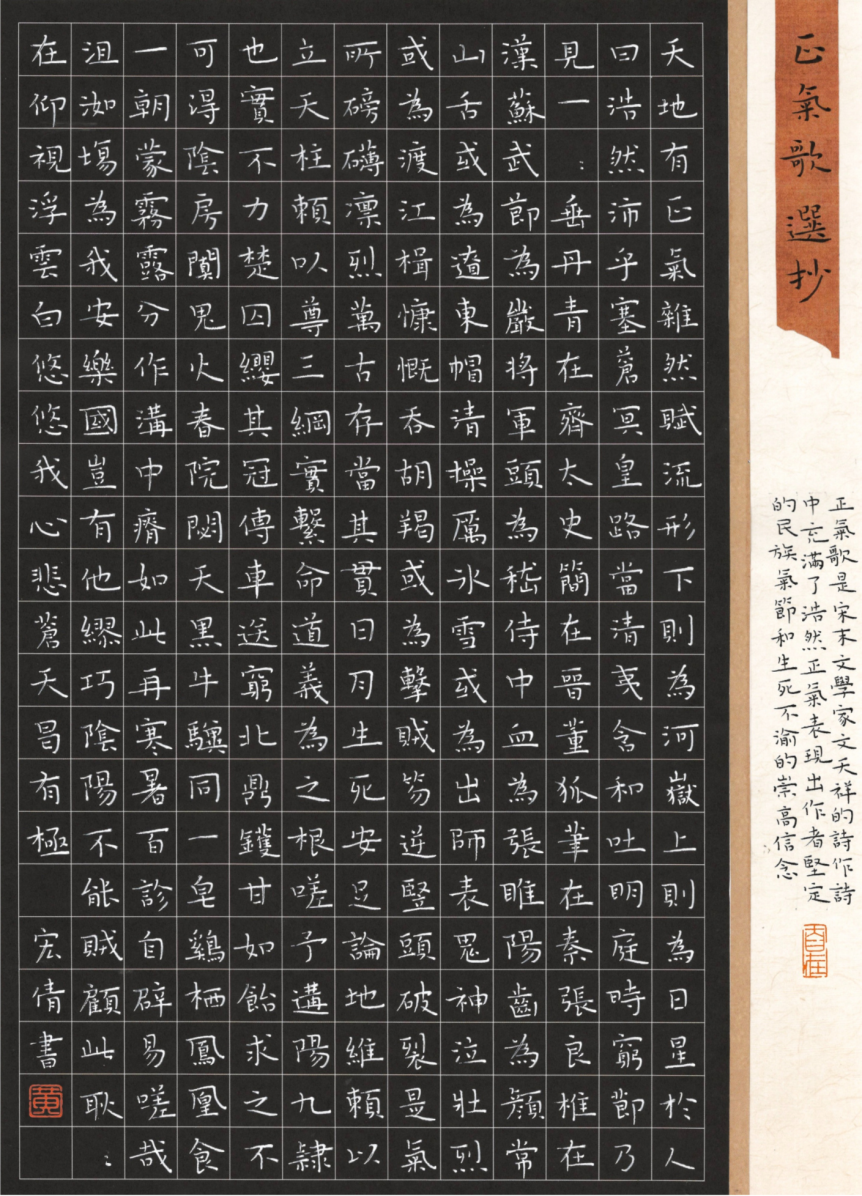 正氣歌選抄
正氣歌是宋末文學家文天祥的詩作詩
中充滿了浩然正氣表現出作者堅定
的民族氣節和生死不渝的崇高信念
天地有正氣雜然賦流形下則為河嶽上則為日星於人
曰浩然沛乎塞蒼冥皇路當清夷含和吐明庭時窮節乃
見一:垂丹青在齊太史簡在晉董狐筆在秦張良椎在
漢蘇武節為嚴將軍頭為嵇侍中血為張睢陽齒為顏常
山舌或為遼東帽清操厲冰雪或為出師表鬼神泣壯烈
或為渡江楫慷慨吞胡羯或為擊賊笏逆豎頭破裂是氣
所磅礴凜烈萬古存當其貫日月生死安足論地維賴以
立天柱賴以尊三綱實繫命道義為之根嗟予遘陽九隸
也實不力楚囚纓其冠傳車送窮北鼎鑊甘如飴求之不
可得陰房闐鬼火春院閟天黑牛驥同一皂鷄栖鳳凰食
一朝蒙霧露分作溝中瘠如此再寒暑百診自辟易嗟哉
沮洳場為我安樂國豈有他繆巧陰陽不能賊顧此耿:
在仰視浮雲白悠悠我心悲蒼天曷有極 宏倩書
黃